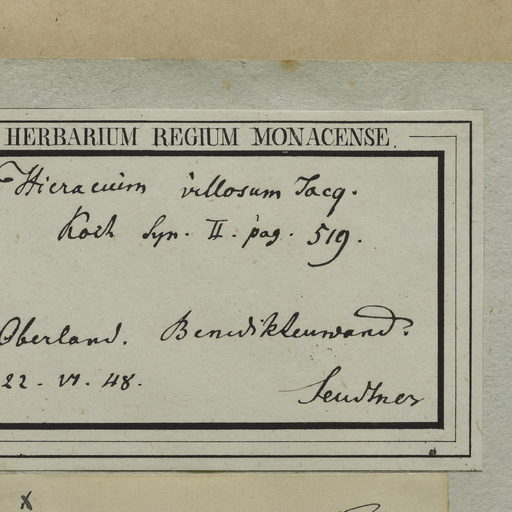 HERBARIUM REGIUM MONACENSE.
Hieracium villosum Jacq.
Koch Syn. II. pag. 519.
Oberland. Benediktenwand.
22. VI. 48.
Sendtner
x